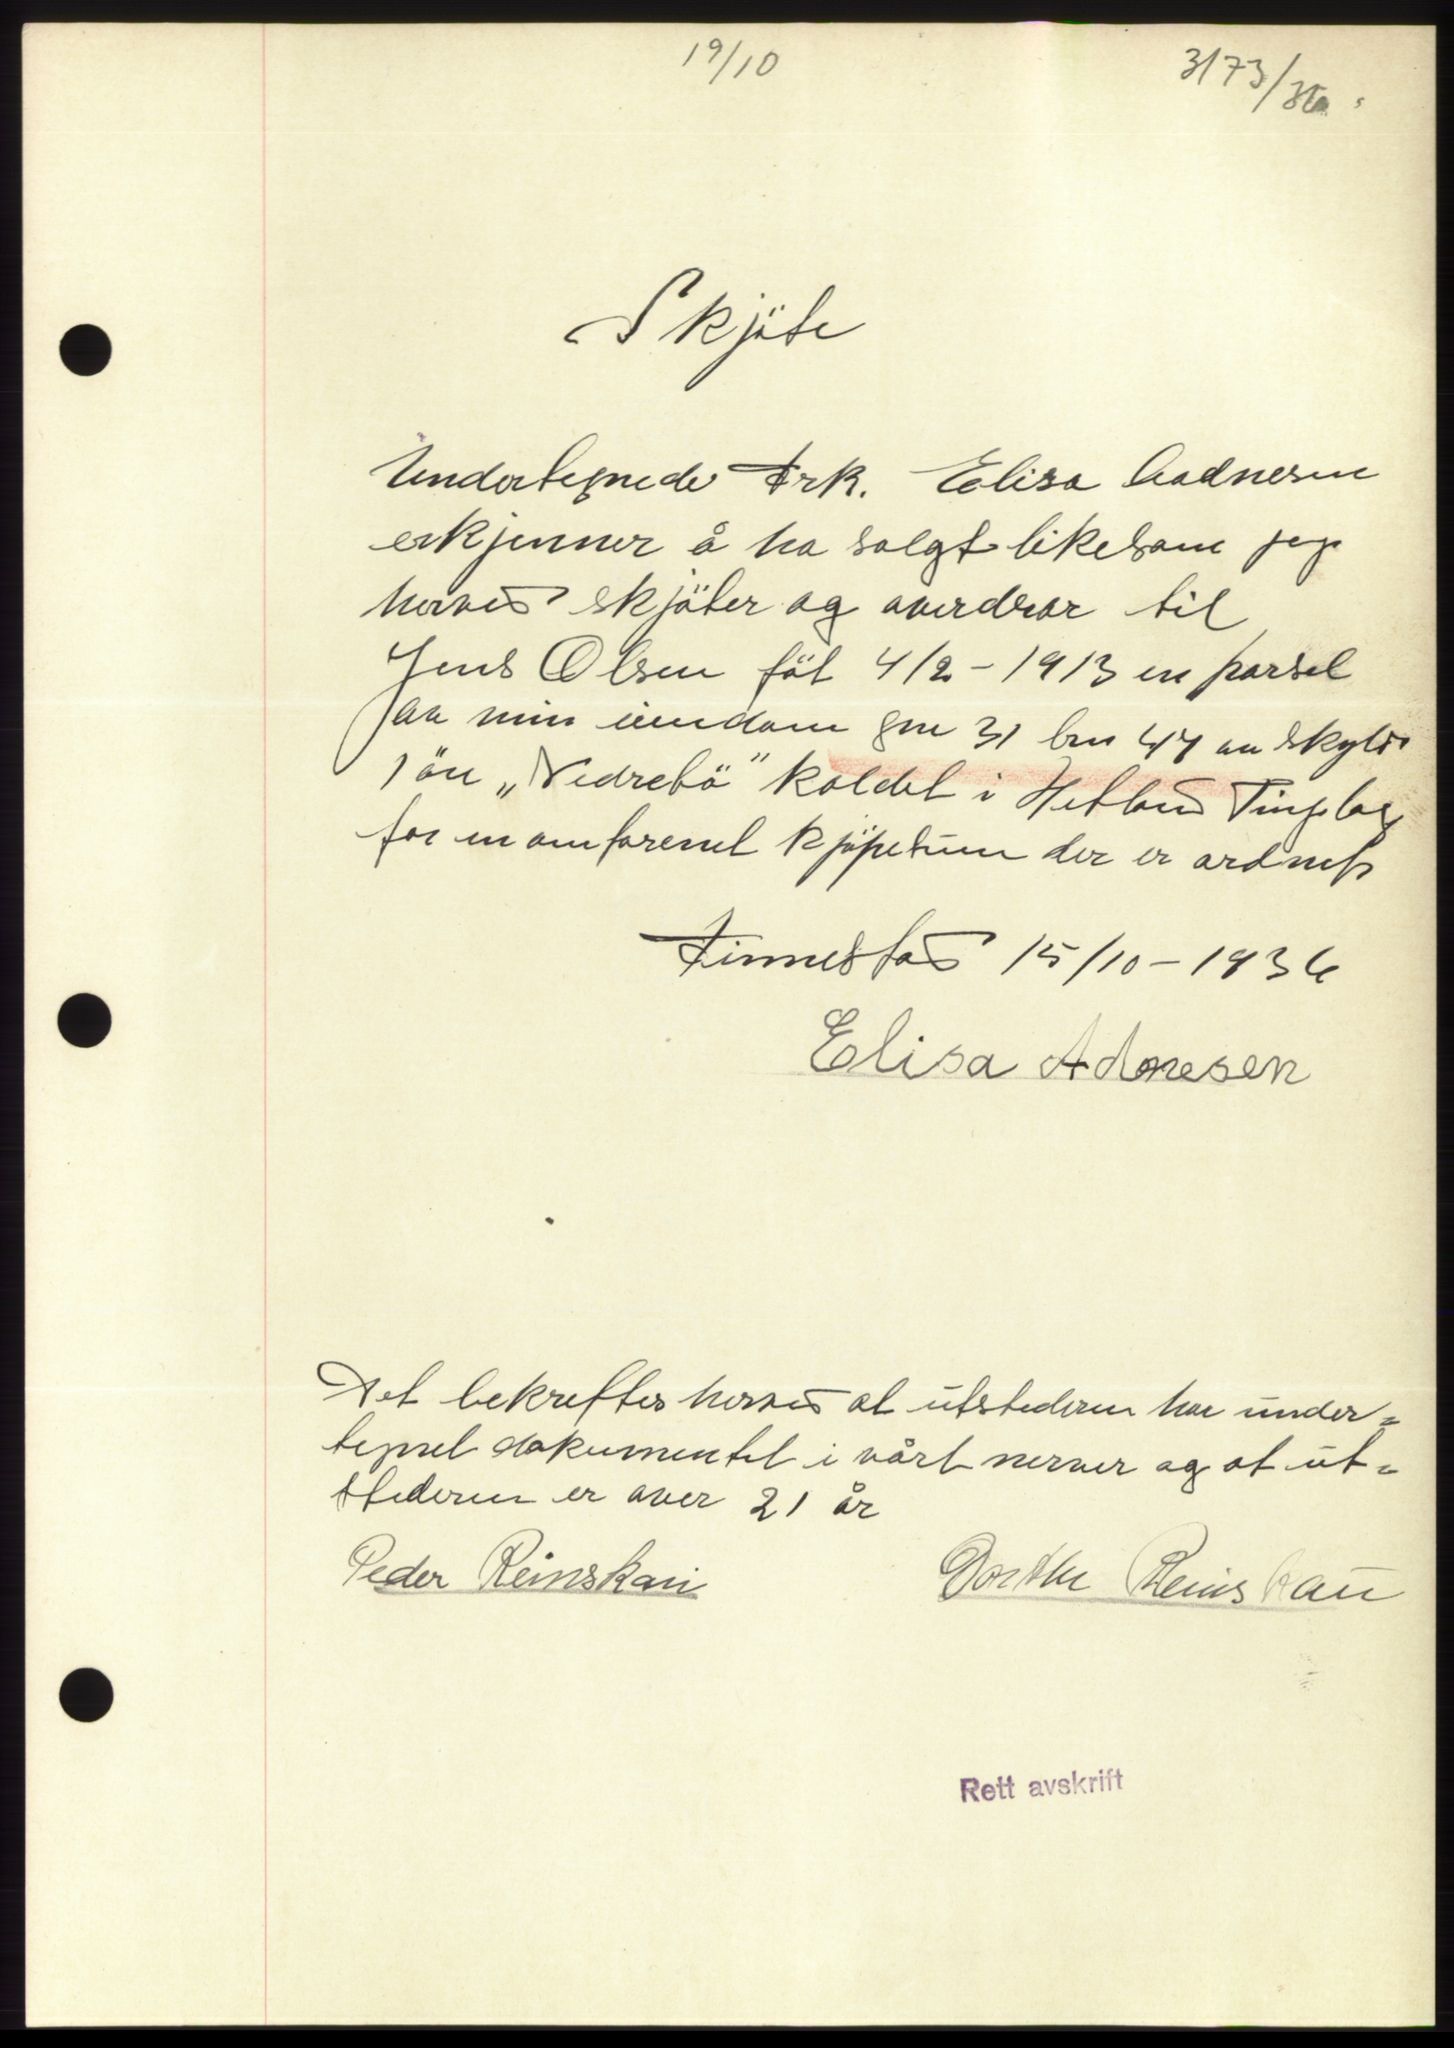 19/10
3173/36
Skjöte
Undertegnede Frk. Elisa Aadnesen
erkjenner å ha solgt likesom jeg
herved skjöter og overdrar til
Jens Olsen föt 4/2-1913 en parsel
av min eiendom gnr 31 bnr 47 av skyld
1 öre „Nedrebö" kaldet i Hetland Tinglag
for en omforenet kjöpesum der er ordnet
Finnestad 15/10-1936
Elisa Adnesen
Det bekreftes herved at utstederen har under=
tegnet dokumentet i vårt nerver og at ut=
stederen er over 21 år
Peder Reinskau
Dorthe Reinskau
Rett avskrift